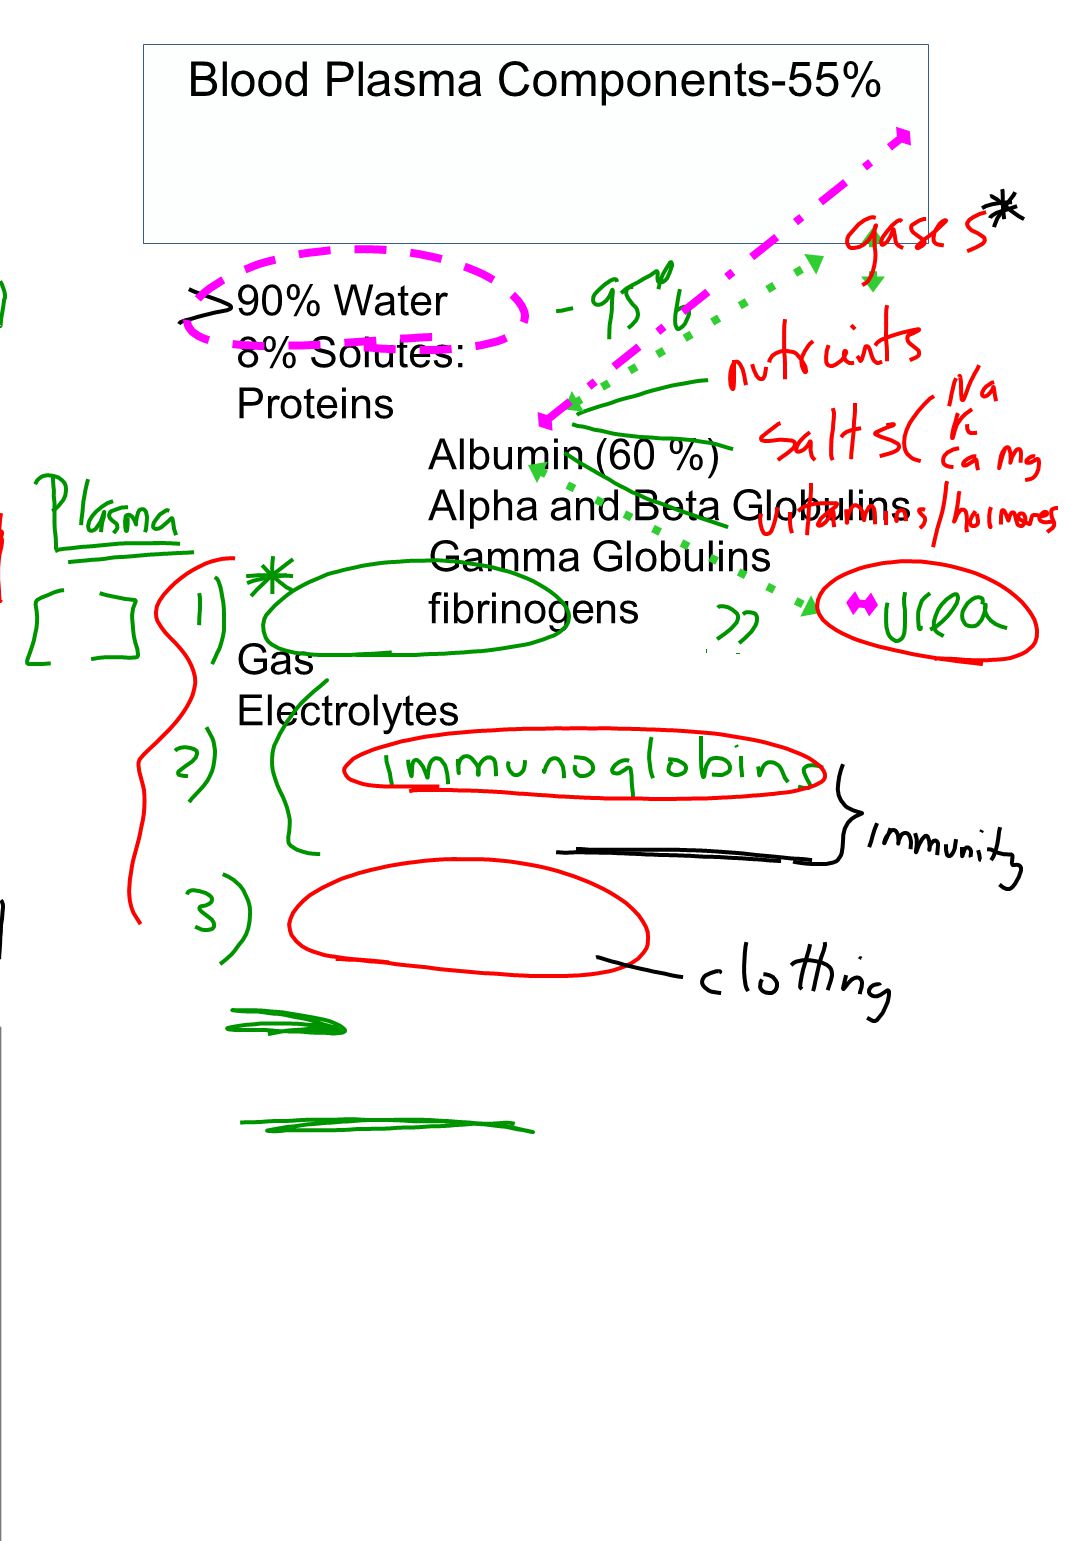 Blood Plasma Components-55%
gases*
90% Water - 95%
8% Solutes:
nutrients
Proteins
salts( Na
K
Ca Mg
Albumin (60 %)
Alpha and Beta Globulins
vitamins/hormones
Plasma
Gamma Globulins
[ ] 1) *
fibrinogens
>> urea
Gas
Electrolytes
2) immunoglobins
} immunity
3)
clotting